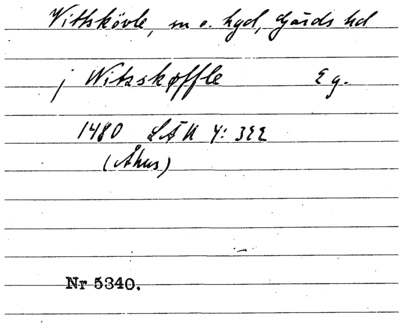 Vittskövle, sn o. hgd, Gärds hd
j Witzskøffle Eg.
1480 LÄU 4: 322
(Åhus)
Nr 5340.